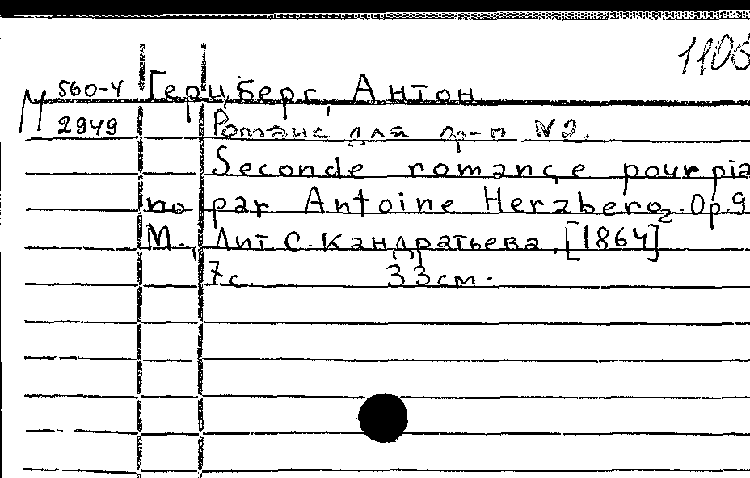 1106
М 560-4 Герцберг, Антон
2949 Романс для ф-п №2.
Seconde romance pour pia
no par Antoine Herzberg. Op.9
М., Лит. С. Кандратьева, [1864]
7с. 33см.